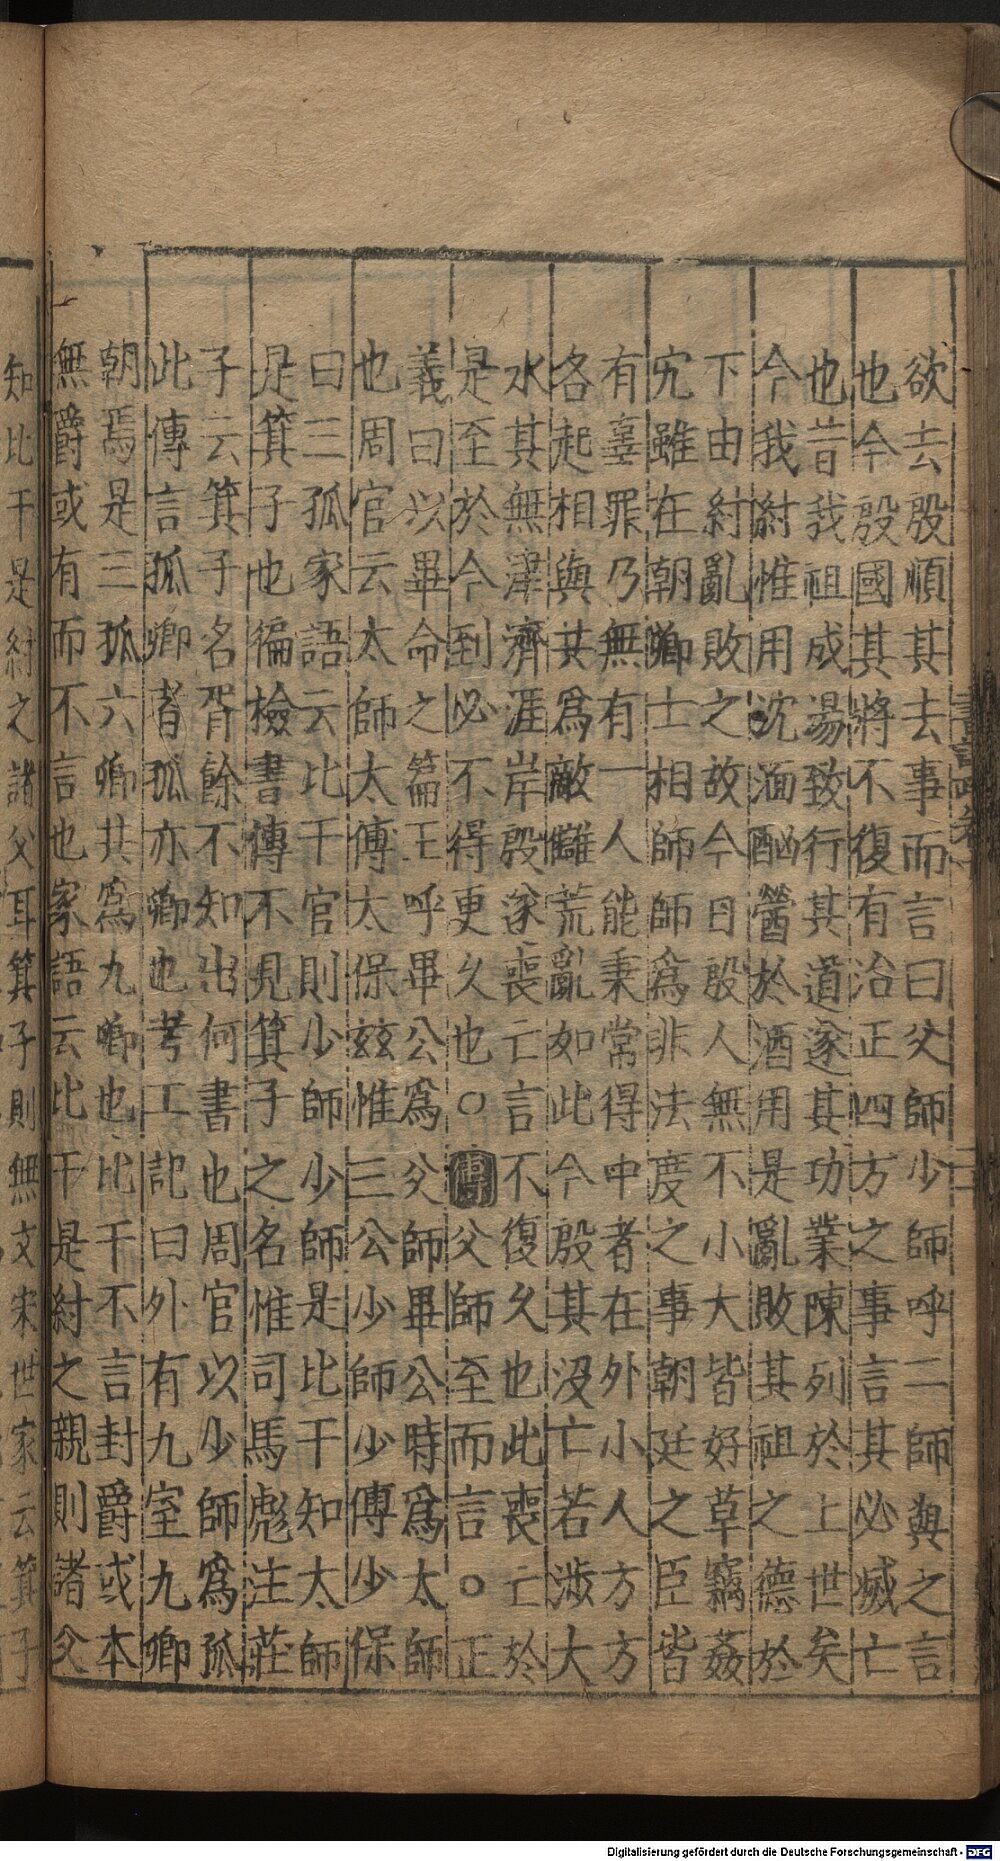 欲去殷順其去事而言曰父師少師呼二師與之言
也今殷國其將不復有治正四方之事言其必滅亡
也昔我祖成湯致行其道遂其功業陳列於上世矣
今我紂惟用沈湎酗醟於酒用是亂敗其祖之德於
下由紂亂敗之故今日殷人無不小大皆好草竊姦
宄雖在朝卿士相師師為非法度之事朝廷之臣皆
有辜罪乃無有一人能秉常得中者在外小人方方
各起相與共為敵讎荒亂如此今殷其沒亡若涉大
水其無津濟涯岸殷遂喪亡言不復久也此喪亡於
是至於今到必不得更久也○傳父師至而言○正
義曰以畢命之篇王呼畢公為父師畢公時為太師
也周官云太師太傅太保玆惟三公少師少傅少保
曰三孤家語云比干官則少師少師是比干知太師
是箕子也徧檢書傳不見箕子之名惟司馬彪注莊
子云箕子名胥餘不知出何書也周官以少師為孤
此傳言孤卿者孤亦卿也考工記曰外有九室九卿
朝焉是三孤六卿共為九卿也比干不言封爵或本
無爵或有而不言也家語云比干是紂之親則諸父
知比干是紂之諸父耳箕子則無文宋世家云箕子
Digitalisierung gefördert durch die Deutsche Forschungsgemeinschaft - DFG